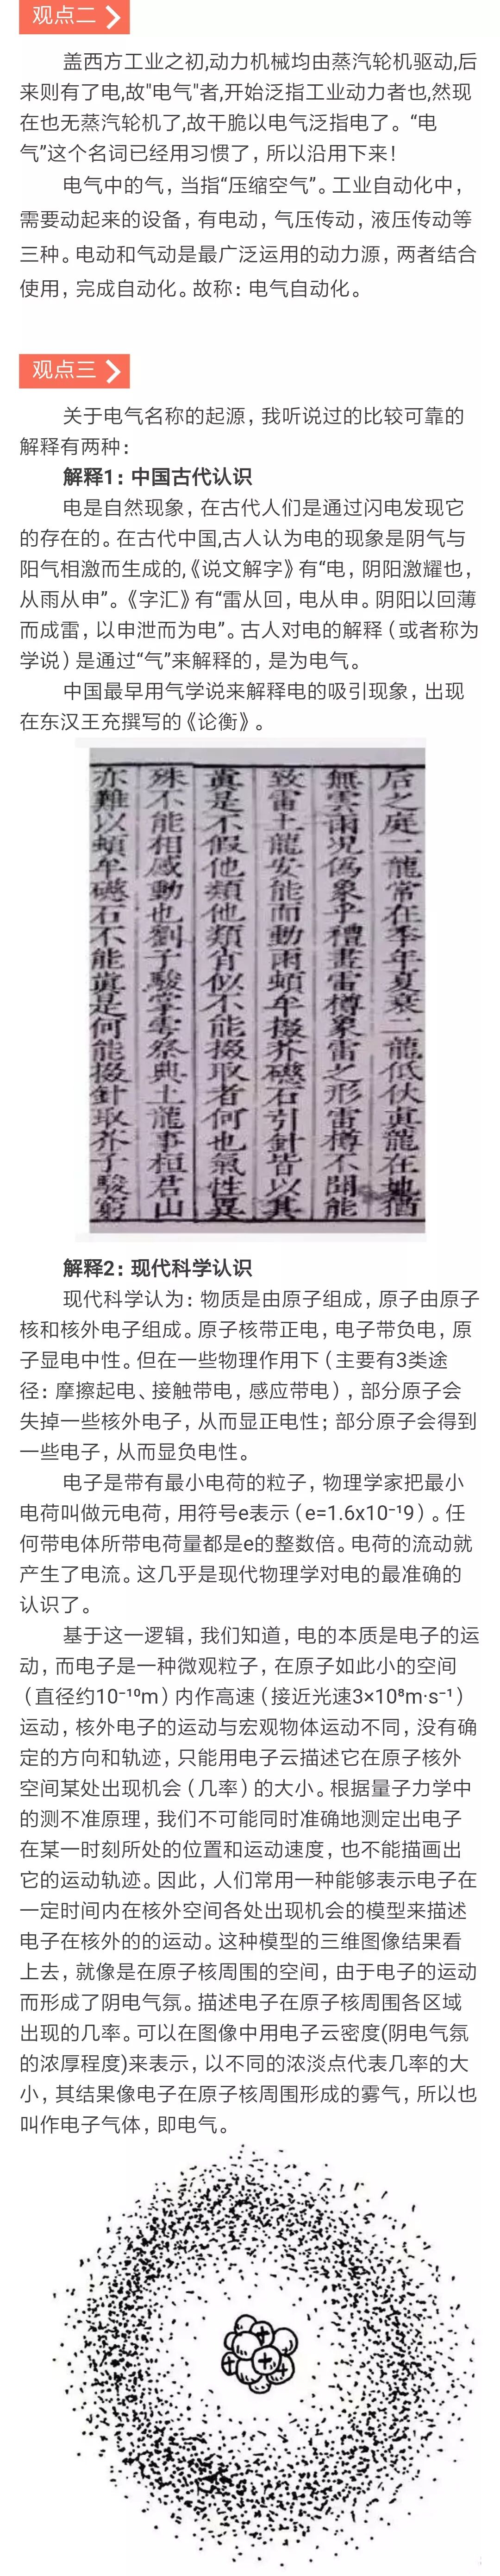 观点二
盖西方工业之初,动力机械均由蒸汽轮机驱动,后
来则有了电,故"电气"者,开始泛指工业动力者也,然现
在也无蒸汽轮机了,故干脆以电气泛指电了。“电
气”这个名词已经用习惯了，所以沿用下来！
电气中的气，当指“压缩空气”。工业自动化中，
需要动起来的设备，有电动，气压传动，液压传动等
三种。电动和气动是最广泛运用的动力源，两者结合
使用，完成自动化。故称：电气自动化。
观点三
关于电气名称的起源，我听说过的比较可靠的
解释有两种：
解释1：中国古代认识
电是自然现象，在古代人们是通过闪电发现它
的存在的。在古代中国,古人认为电的现象是阴气与
阳气相激而生成的,《说文解字》有“电，阴阳激耀也，
从雨从申”。《字汇》有“雷从回，电从申。阴阳以回薄
而成雷，以申泄而为电”。古人对电的解释（或者称为
学说）是通过“气”来解释的，是为电气。
中国最早用气学说来解释电的吸引现象，出现
在东汉王充撰写的《论衡》。
后之庭二龍常在季年夏衰二龍低伏真龍在地猶
無雲雨況偽象乎禮畫雷樽象雷之形雷樽不聞能
致雷土龍安能而動雨頓牟掇芥磁石引針皆以其
真是不假他類他類肖似不能掇取者何也氣性異
殊不能相感動也劉子駿掌雩祭典土龍事桓君山
亦難以頓牟磁石不能真是何能掇針取芥子駿窮
解释2：现代科学认识
现代科学认为：物质是由原子组成，原子由原子
核和核外电子组成。原子核带正电，电子带负电，原
子显电中性。但在一些物理作用下（主要有3类途
径：摩擦起电、接触带电，感应带电），部分原子会
失掉一些核外电子，从而显正电性；部分原子会得到
一些电子，从而显负电性。
电子是带有最小电荷的粒子，物理学家把最小
电荷叫做元电荷，用符号e表示（e=1.6x10⁻¹9）。任
何带电体所带电荷量都是e的整数倍。电荷的流动就
产生了电流。这几乎是现代物理学对电的最准确的
认识了。
基于这一逻辑，我们知道，电的本质是电子的运
动，而电子是一种微观粒子，在原子如此小的空间
（直径约10⁻¹⁰m）内作高速（接近光速3×10⁸m·s⁻¹）
运动，核外电子的运动与宏观物体运动不同，没有确
定的方向和轨迹，只能用电子云描述它在原子核外
空间某处出现机会（几率）的大小。根据量子力学中
的测不准原理，我们不可能同时准确地测定出电子
在某一时刻所处的位置和运动速度，也不能描画出
它的运动轨迹。因此，人们常用一种能够表示电子在
一定时间内在核外空间各处出现机会的模型来描述
电子在核外的的运动。这种模型的三维图像结果看
上去，就像是在原子核周围的空间，由于电子的运动
而形成了阴电气氛。描述电子在原子核周围各区域
出现的几率。可以在图像中用电子云密度(阴电气氛
的浓厚程度)来表示，以不同的浓淡点代表几率的大
小，其结果像电子在原子核周围形成的雾气，所以也
叫作电子气体，即电气。